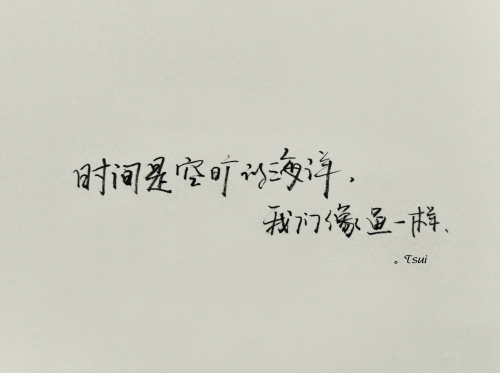 时间是空旷的海洋，
我们像鱼一样、
。Tsui